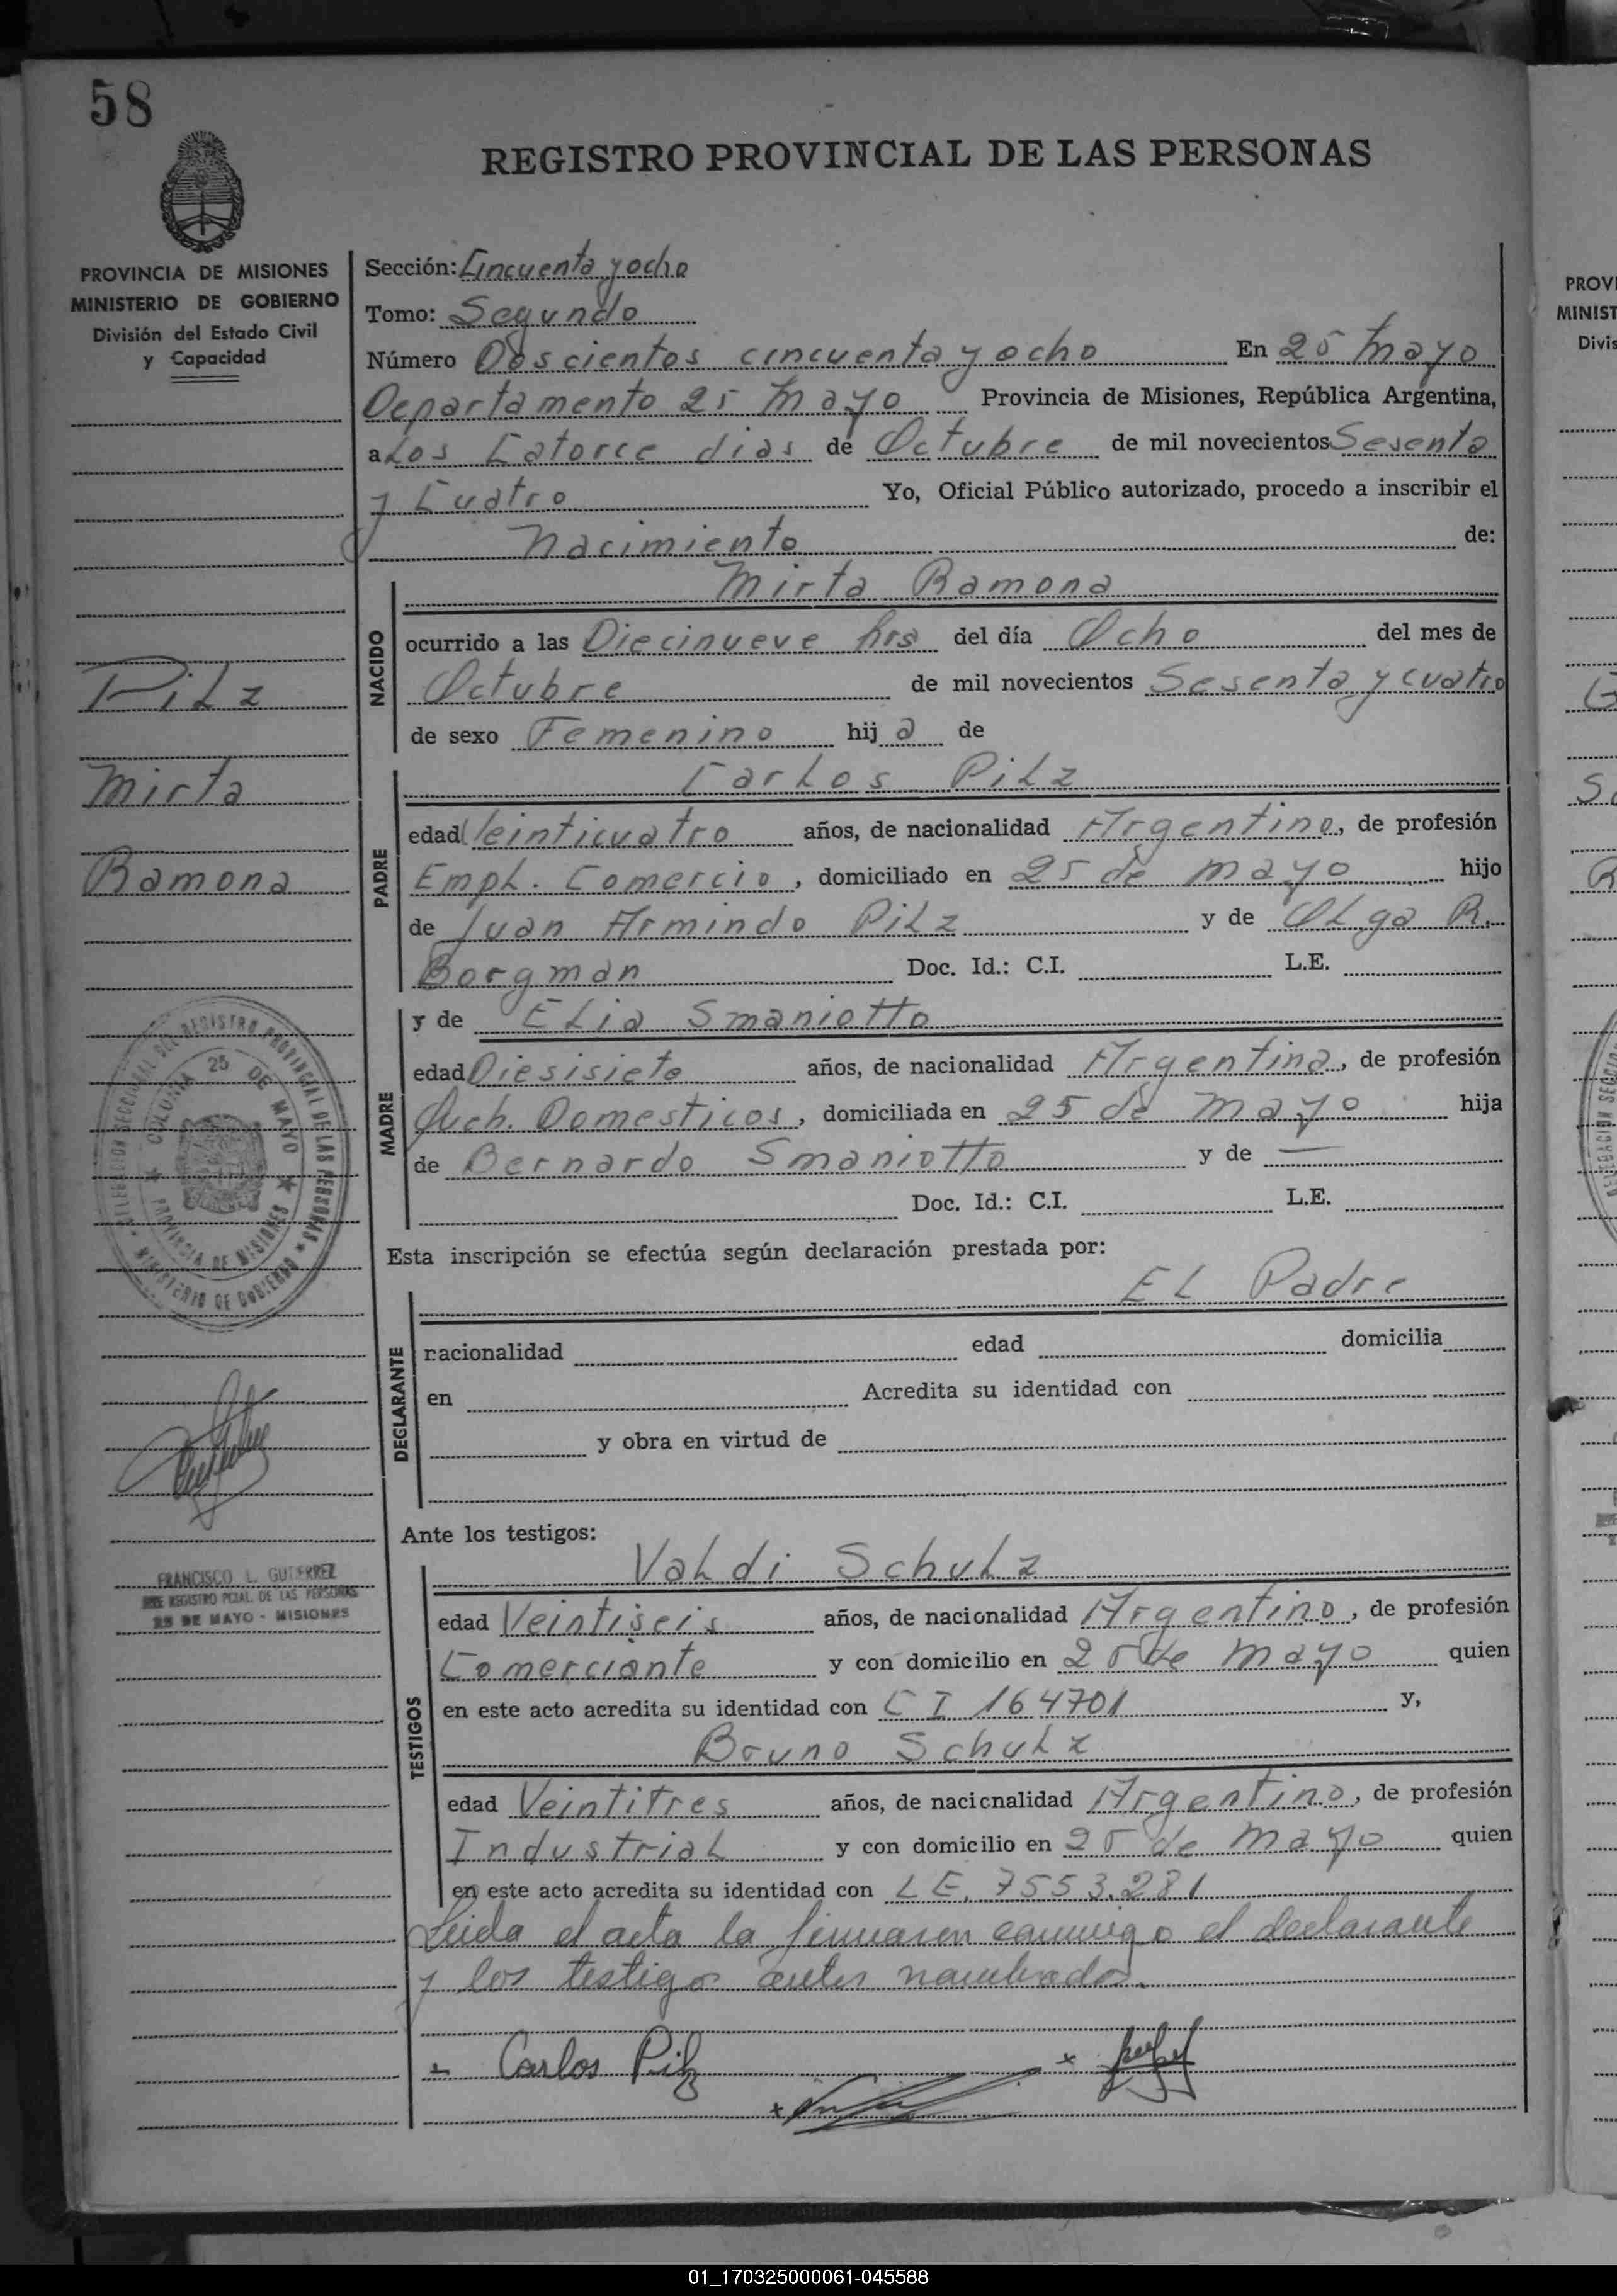 58
REGISTRO PROVINCIAL DE LAS PERSONAS
PROVINCIA DE MISIONES
MINISTERIO DE GOBIERNO
División del Estado Civil
y Capacidad
Pilz
Mirta
Ramona
DELEGACION SECCIONAL DEL REGISTRO PROVINCIAL DE LAS PERSONAS
MINISTERIO DE GOBIERNO
COLONIA 25 DE MAYO
PROVINCIA DE MISIONES
FRANCISCO L. GUTIERREZ
JEFE REGISTRO PCIAL. DE LAS PERSONAS
25 DE MAYO - MISIONES
Sección: Cincuenta y ocho
Tomo: Segundo
Número Doscientos cincuenta y ocho En 25 Mayo
Departamento 25 Mayo Provincia de Misiones, República Argentina,
a Los Catorce dias de Octubre de mil novecientos Sesenta
y Cuatro Yo, Oficial Público autorizado, procedo a inscribir el
Nacimiento de:
NACIDO
Mirta Ramona
ocurrido a las Diecinueve hrs del día Ocho del mes de
Octubre de mil novecientos Sesenta y cuatro
de sexo Femenino hija de
PADRE
Carlos Pilz
edad Veinticuatro años, de nacionalidad Argentino, de profesión
Empl. Comercio, domiciliado en 25 de Mayo hijo
de Juan Armindo Pilz y de Olga R.
Borgman Doc. Id.: C.I. L.E.
MADRE
y de Elia Smaniotto
edad Diesisiete años, de nacionalidad Argentina, de profesión
Queh. Domesticos, domiciliada en 25 de Mayo hija
de Bernardo Smaniotto y de —
Doc. Id.: C.I. L.E.
Esta inscripción se efectúa según declaración prestada por:
DECLARANTE
El Padre
nacionalidad edad domicilia
en Acredita su identidad con
y obra en virtud de
Ante los testigos:
TESTIGOS
Valdi Schulz
edad Veintiseis años, de nacionalidad Argentino, de profesión
Comerciante y con domicilio en 25 de Mayo quien
en este acto acredita su identidad con C I 164701 y,
Bruno Schulz
edad Veintitres años, de nacionalidad Argentino, de profesión
Industrial y con domicilio en 25 de Mayo quien
en este acto acredita su identidad con LE. 7553.281
Leida el acta la firmaron conmigo el declarante
y los testigos antes nombrados.
Carlos Pilz
PROVI
MINIST
Divis
01_170325000061-045588